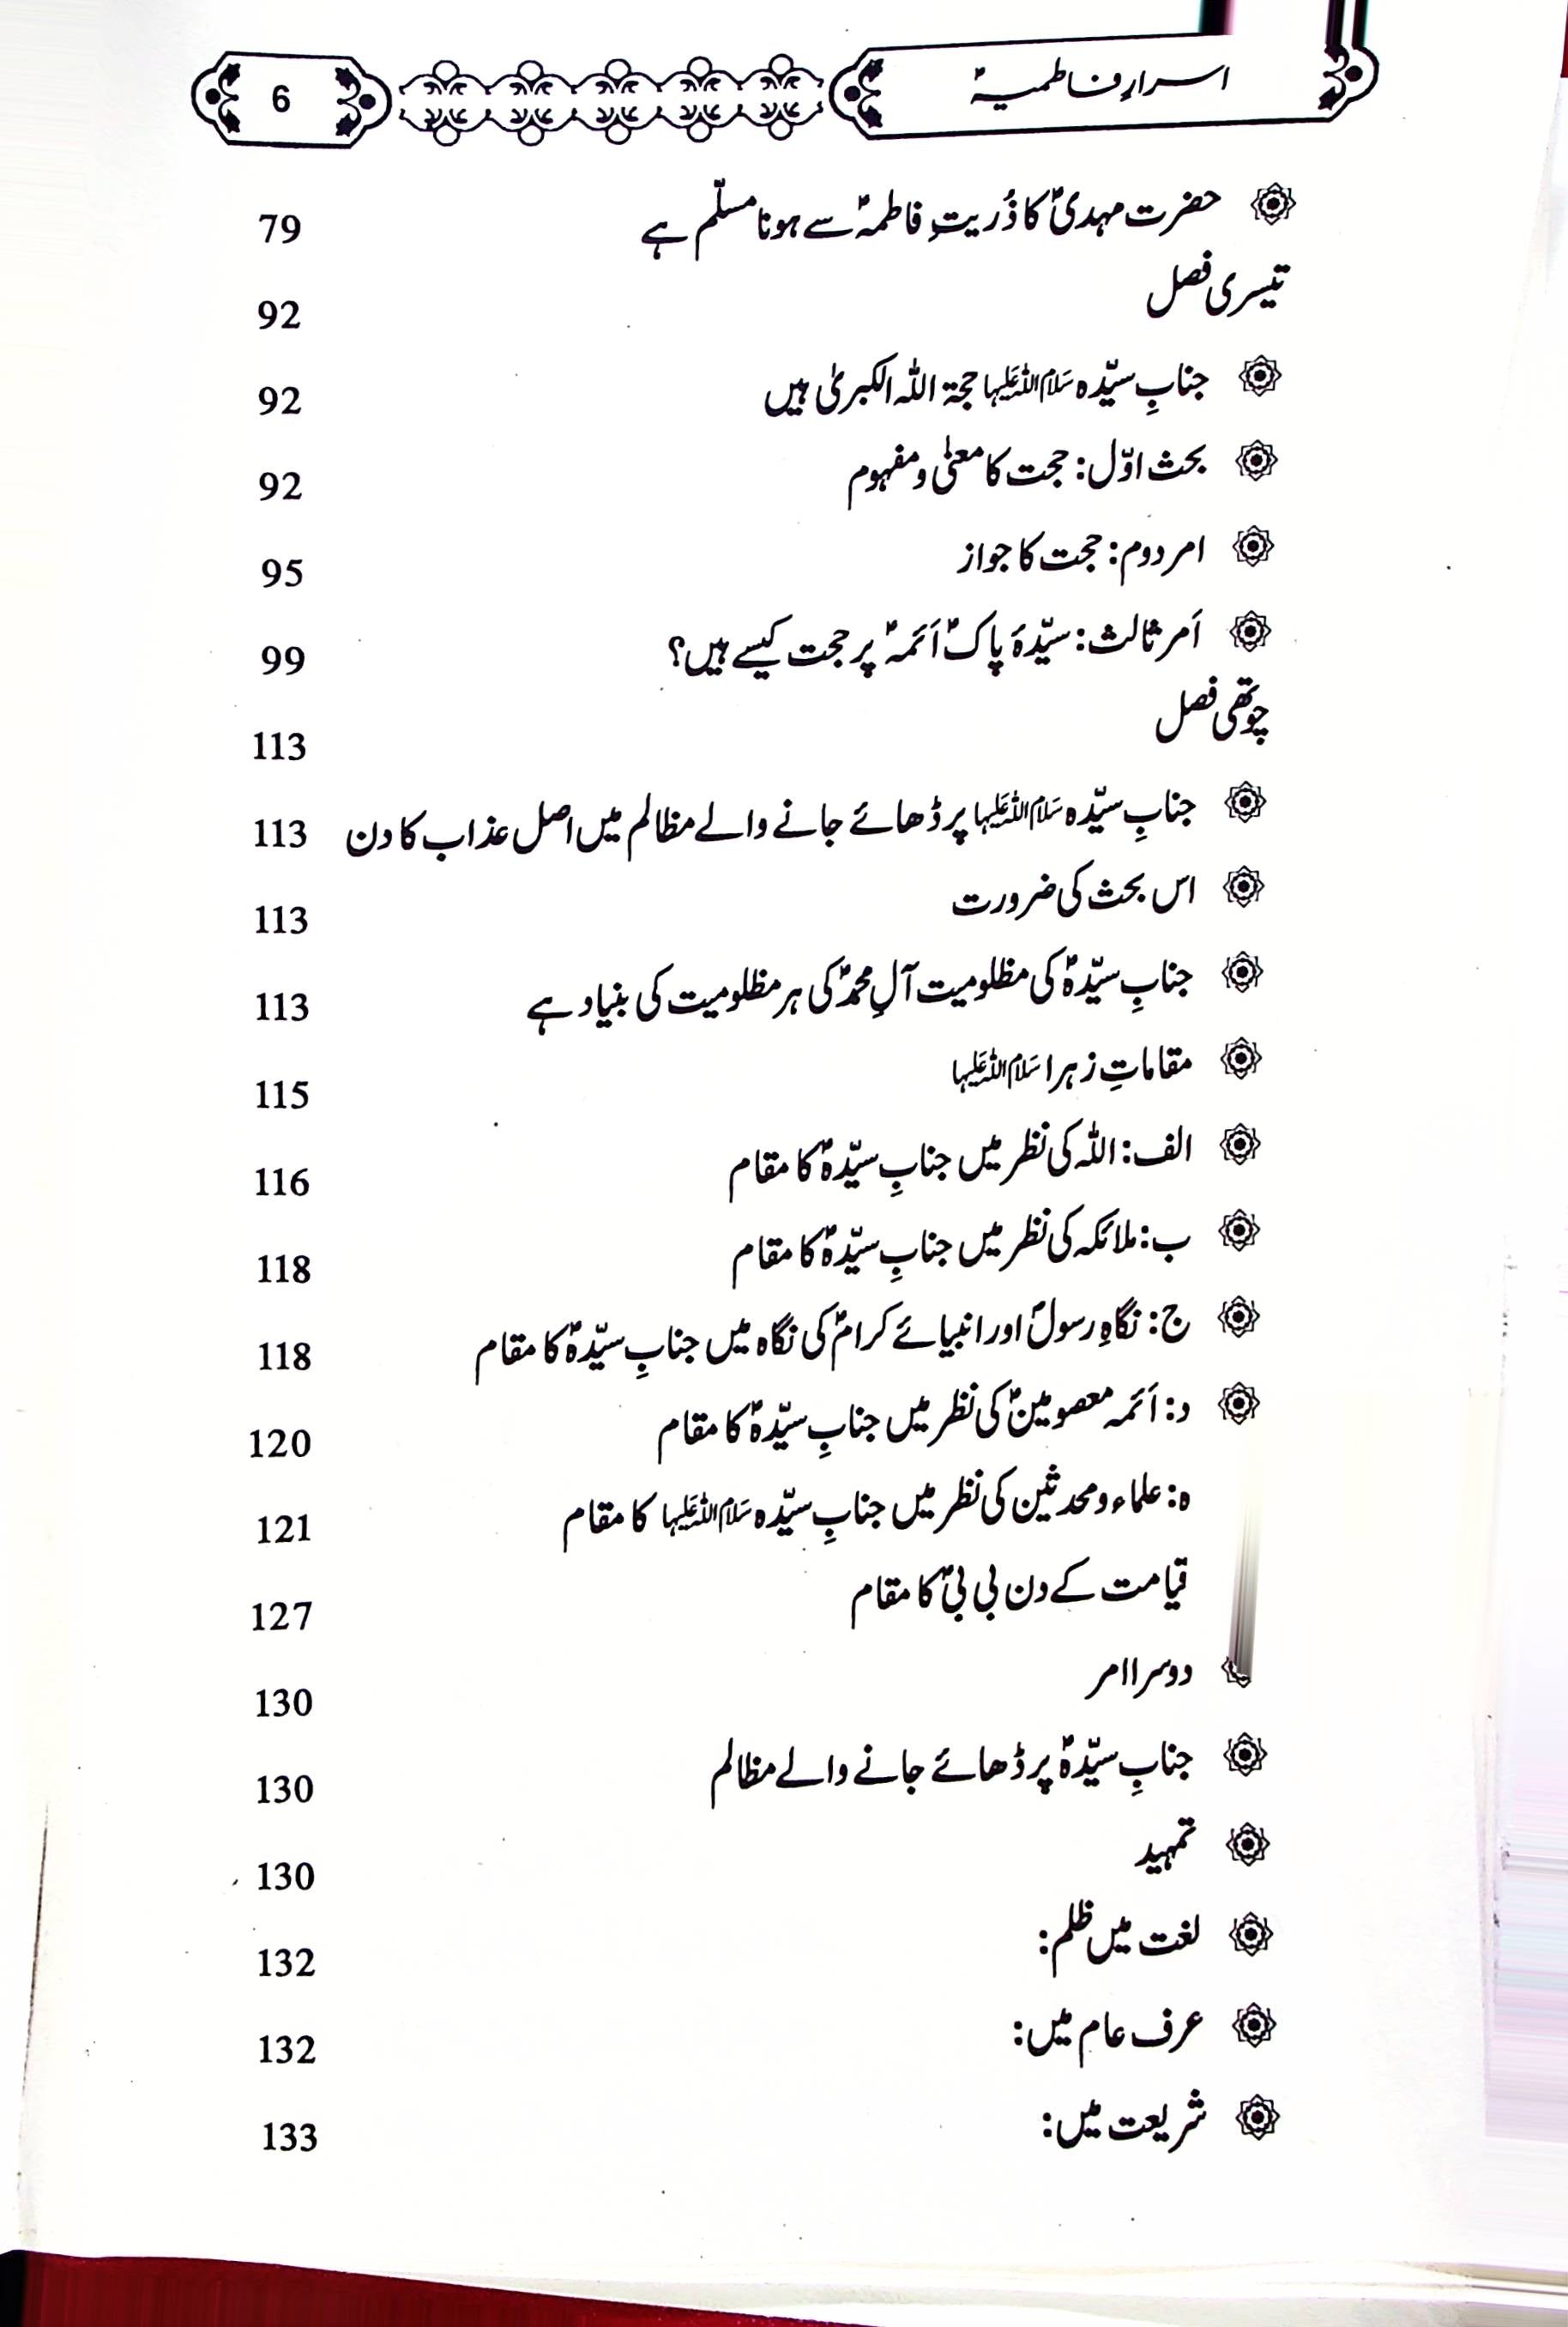 اسرارِ فاطمیہؑ 6
حضرت مہدیؑ کا ذُریتِ فاطمہؑ سے ہونا مسلّم ہے 79
تیسری فصل 92
جنابِ سیّدہ سَلَامُ اللہِ عَلَیْہَا حجۃ اللہ الکبریٰ ہیں 92
بحث اوّل: حجت کا معنیٰ و مفہوم 92
امر دوم: حجت کا جواز 95
اَمر ثالث: سیّدۂ پاکؑ اَئمہؑ پر حجت کیسے ہیں؟ 99
چوتھی فصل 113
جنابِ سیّدہ سَلَامُ اللہِ عَلَیْہَا پر ڈھائے جانے والے مظالم میں اصل عذاب کا دن 113
اس بحث کی ضرورت 113
جنابِ سیّدہؑ کی مظلومیت آلِ محمدؑ کی ہر مظلومیت کی بنیاد ہے 113
مقاماتِ زہرا سَلَامُ اللہِ عَلَیْہَا 115
الف: اللہ کی نظر میں جنابِ سیّدہؑ کا مقام 116
ب: ملائکہ کی نظر میں جنابِ سیّدہؑ کا مقام 118
ج: نگاہِ رسولؐ اور انبیائے کرامؑ کی نگاہ میں جنابِ سیّدہؑ کا مقام 118
د: اَئمہ معصومینؑ کی نظر میں جنابِ سیّدہؑ کا مقام 120
ہ: علماء و محدثین کی نظر میں جنابِ سیّدہ سَلَامُ اللہِ عَلَیْہَا کا مقام 121
قیامت کے دن بی بیؑ کا مقام 127
دوسرا امر 130
جنابِ سیّدہؑ پر ڈھائے جانے والے مظالم 130
تمہید 130
لغت میں ظلم: 132
عرف عام میں: 132
شریعت میں: 133